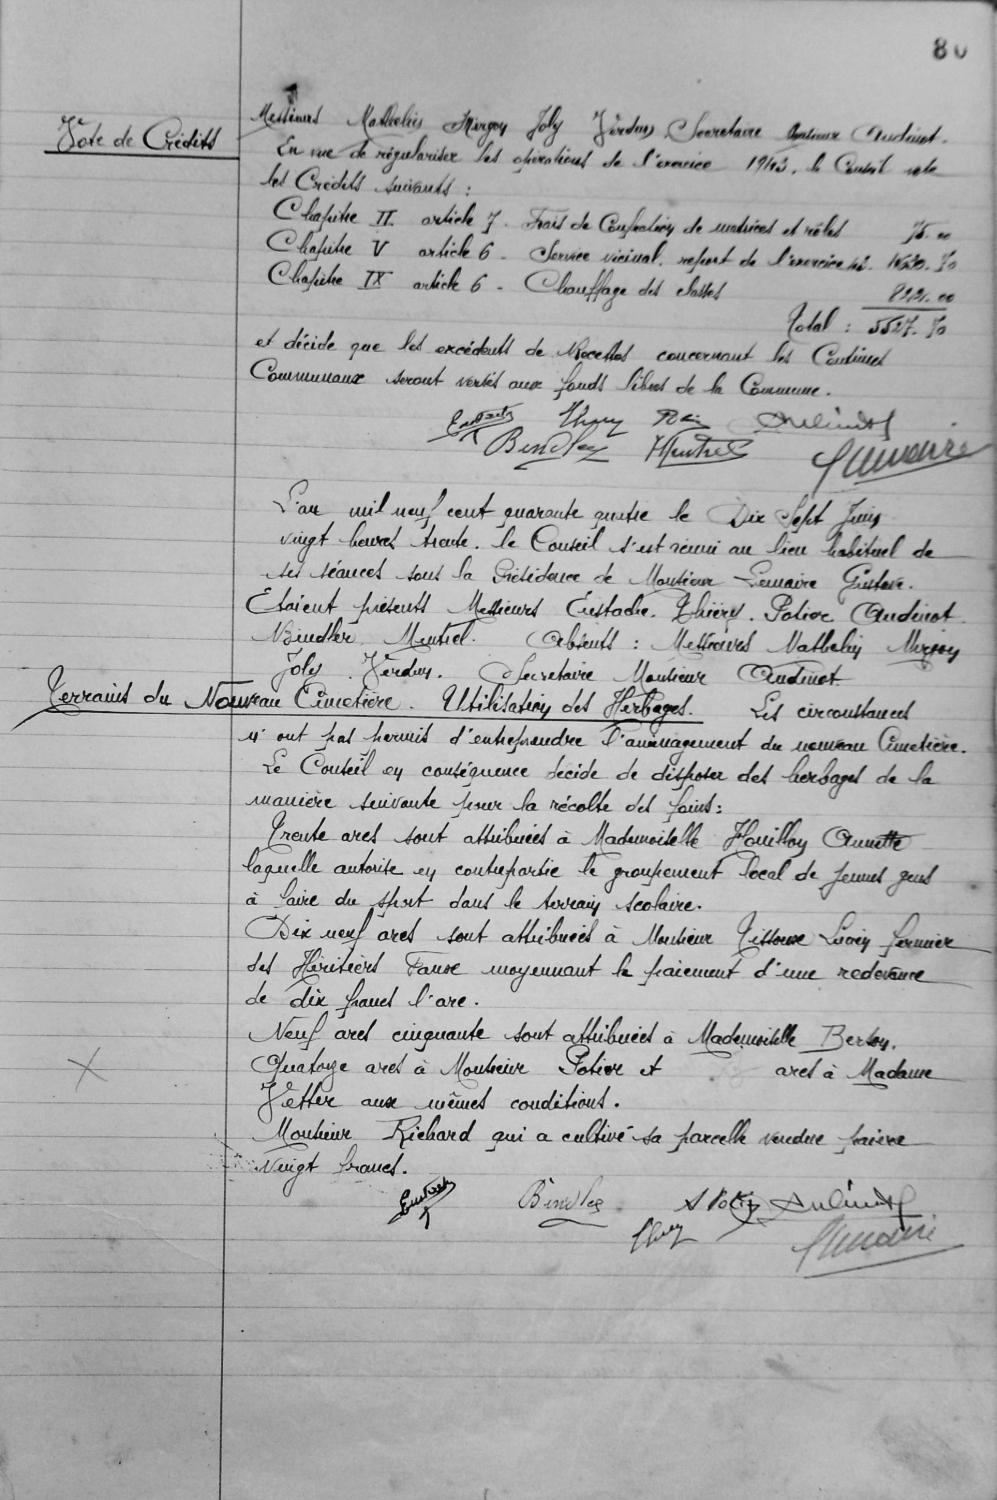 80
Messieurs Mathelin Mirgoy Joly Verdun Secretaire Monsieur Audinot.
Vote de Crédits
En vue de régulariser les opérations de l'exercice 1943, le Conseil vote
les Crédits suivants :
Chapitre II article 7. Frais de Confection de matrices et rôles 75.00
Chapitre V article 6 - Service vicinal. report de l'exercice 42.
Chapitre IX article 6 - Chauffage des classes
Total : 5527.70
et décide que les excédents de Recettes concernant les Continus
Communaux seront versés aux fonds libres de la Commune.
L'an mil neuf cent quarante quatre le Dix Sept Juin
vingt heures trente. le Conseil s'est réuni au lieu habituel de
ses séances sous la Présidence de Monsieur Lemaire Gustave.
Etaient présents Messieurs Eustache. Thiéry. Potier Audinot.
Bindler Mentrel. Absents : Messieurs Mathelin Mirgoy
Joly. Verdun. Secretaire Monsieur Audinot.
Terrains du Nouveau Cimetière. Utilisation des Herbages. Les circonstances
n'ont pas permis d'entreprendre l'aménagement du nouveau Cimetière.
Le Conseil en conséquence décide de disposer des herbages de la
manière suivante pour la récolte des foins :
Trente ares sont attribuées à Mademoiselle Houillon Annette
laquelle autorise en contrepartie le groupement local de jeunes gens
à faire du sport dans le terrain scolaire.
Dix neuf ares sont attribuées à Monsieur Tissoux Lucien fermier
des Héritiers Faux moyennant le paiement d'une redevance
de dix francs l'are.
Neuf ares cinquante sont attribuées à Mademoiselle Berton.
Quatorze ares à Monsieur Potier et ares à Madame
Vetter aux mêmes conditions.
Monsieur Richard qui a cultivé sa parcelle vendue paiera
vingt francs.